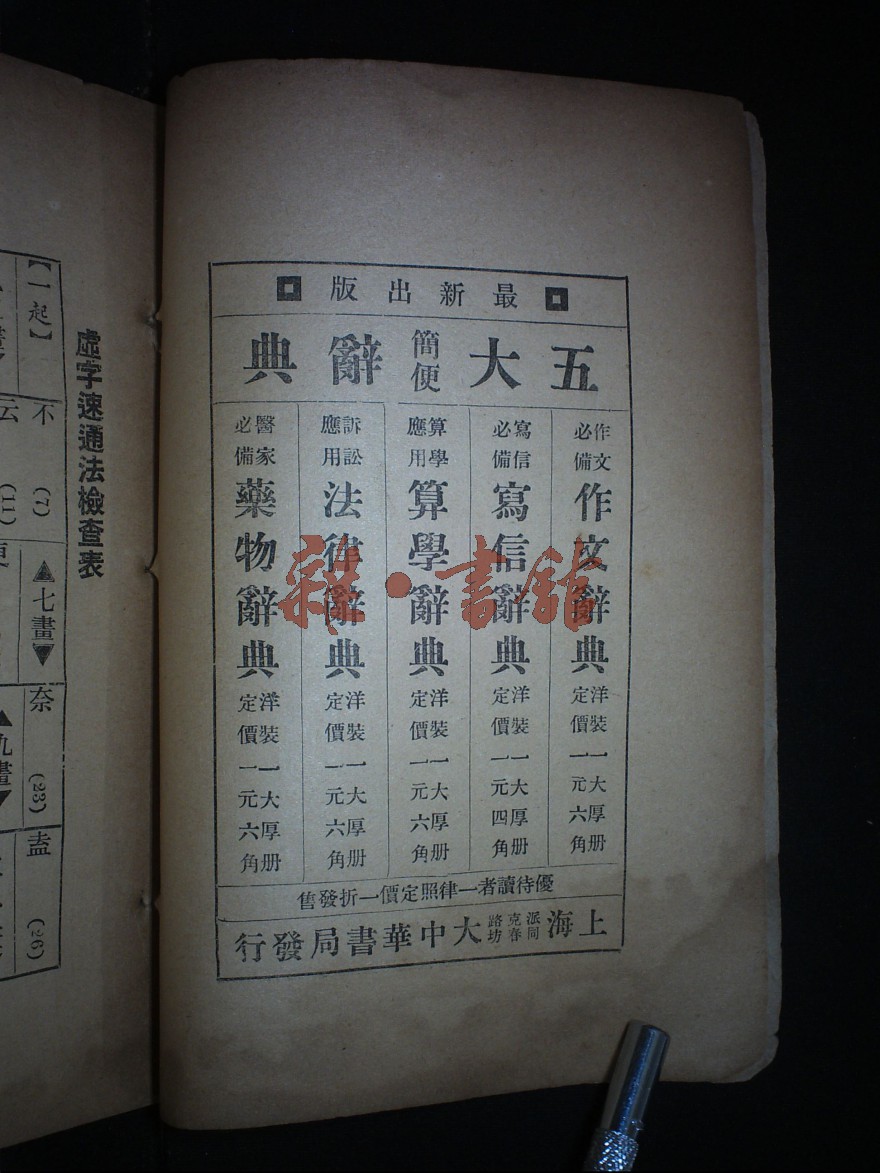 最新出版
五大簡便辭典
作文必備
作文辭典
洋裝一大厚册
定價一元六角
寫信必備
寫信辭典
洋裝一大厚册
定價一元四角
算學應用
算學辭典
洋裝一大厚册
定價一元六角
訴訟應用
法律辭典
洋裝一大厚册
定價一元六角
醫家必備
藥物辭典
洋裝一大厚册
定價一元六角
優待讀者一律照定價一折發售
上海派克路同春坊大中華書局發行
雜·書館
虛字速通法檢查表
【一起】
不 (7)
云
▲七畫▼
奈 (23)
盍 (26)